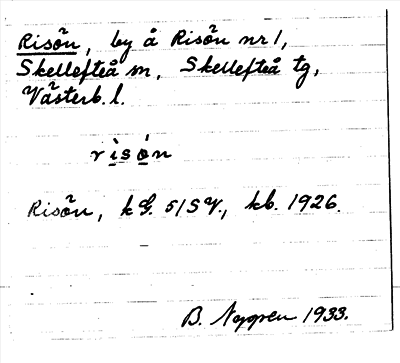 Risön, by å Risön nr 1,
Skellefteå m, Skellefteå tg,
Västerb. l.
rìsón
Risön, kG. 51SV., kb. 1926.
B. Nygren 1933.